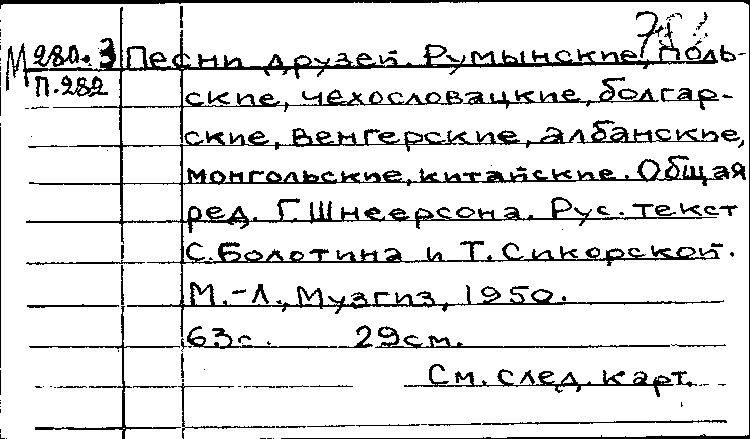 М 280.3 Песни друзей. Румынские, поль-
П.282 ские, чехословацкие, болгар-
ские, венгерские, албанские,
монгольские, китайские. Общая
ред. Г.Шнеерсона. Рус. текст
С.Болотина и Т.Сикорской.
М.-Л., Музгиз, 1950.
63с. 29см.
См. след. карт.